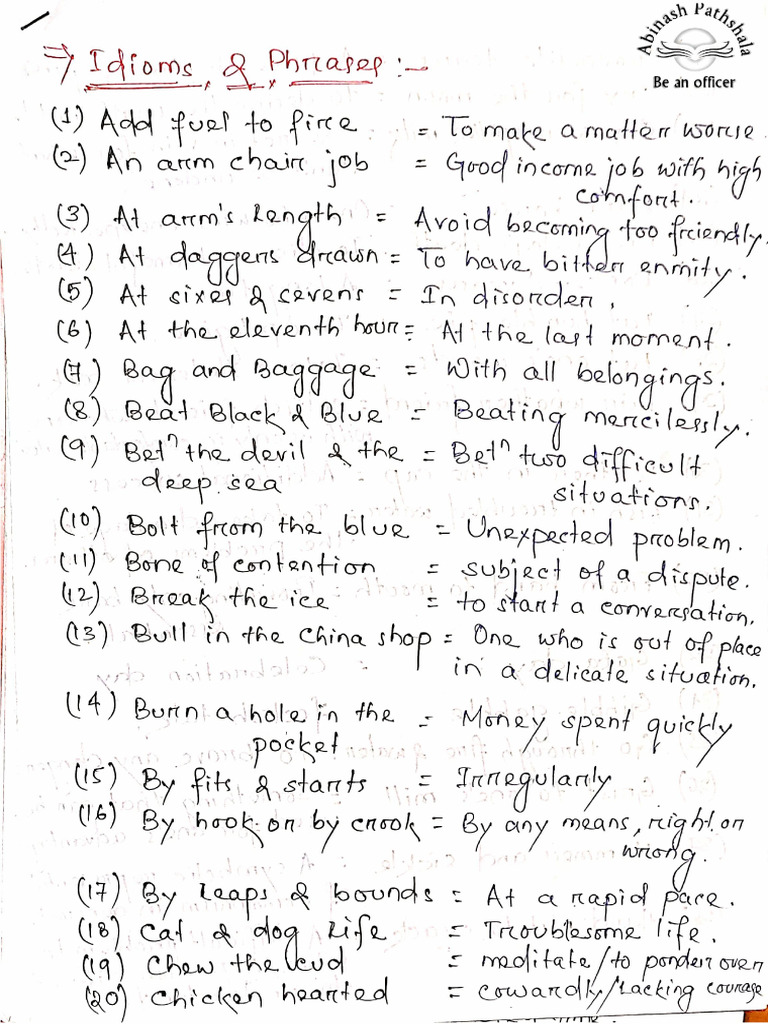 Abinash Pathshala
Be an officer
⇒ Idioms & Phrases :-
(1) Add fuel to fire = To make a matter worse
(2) An arm chair job = Good income job with high
comfort.
(3) At arm's length = Avoid becoming too friendly.
(4) At daggers drawn = To have bitter enmity.
(5) At sixes & sevens = In disorder.
(6) At the eleventh hour = At the last moment.
(7) Bag and Baggage = With all belongings.
(8) Beat Black & Blue = Beating mercilessly.
(9) Betⁿ the devil & the = Betⁿ two difficult
deep sea situations.
(10) Bolt from the blue = Unexpected problem.
(11) Bone of contention = subject of a dispute.
(12) Break the ice = to start a conversation.
(13) Bull in the China shop = One who is out of place
in a delicate situation.
(14) Burn a hole in the = Money spent quickly
pocket
(15) By fits & starts = Irregularly
(16) By hook or by crook = By any means, right or
wrong.
(17) By leaps & bounds = At a rapid pace.
(18) Cat & dog life = Troublesome life.
(19) Chew the cud = meditate/to ponder over
(20) Chicken hearted = cowardly/Lacking courage